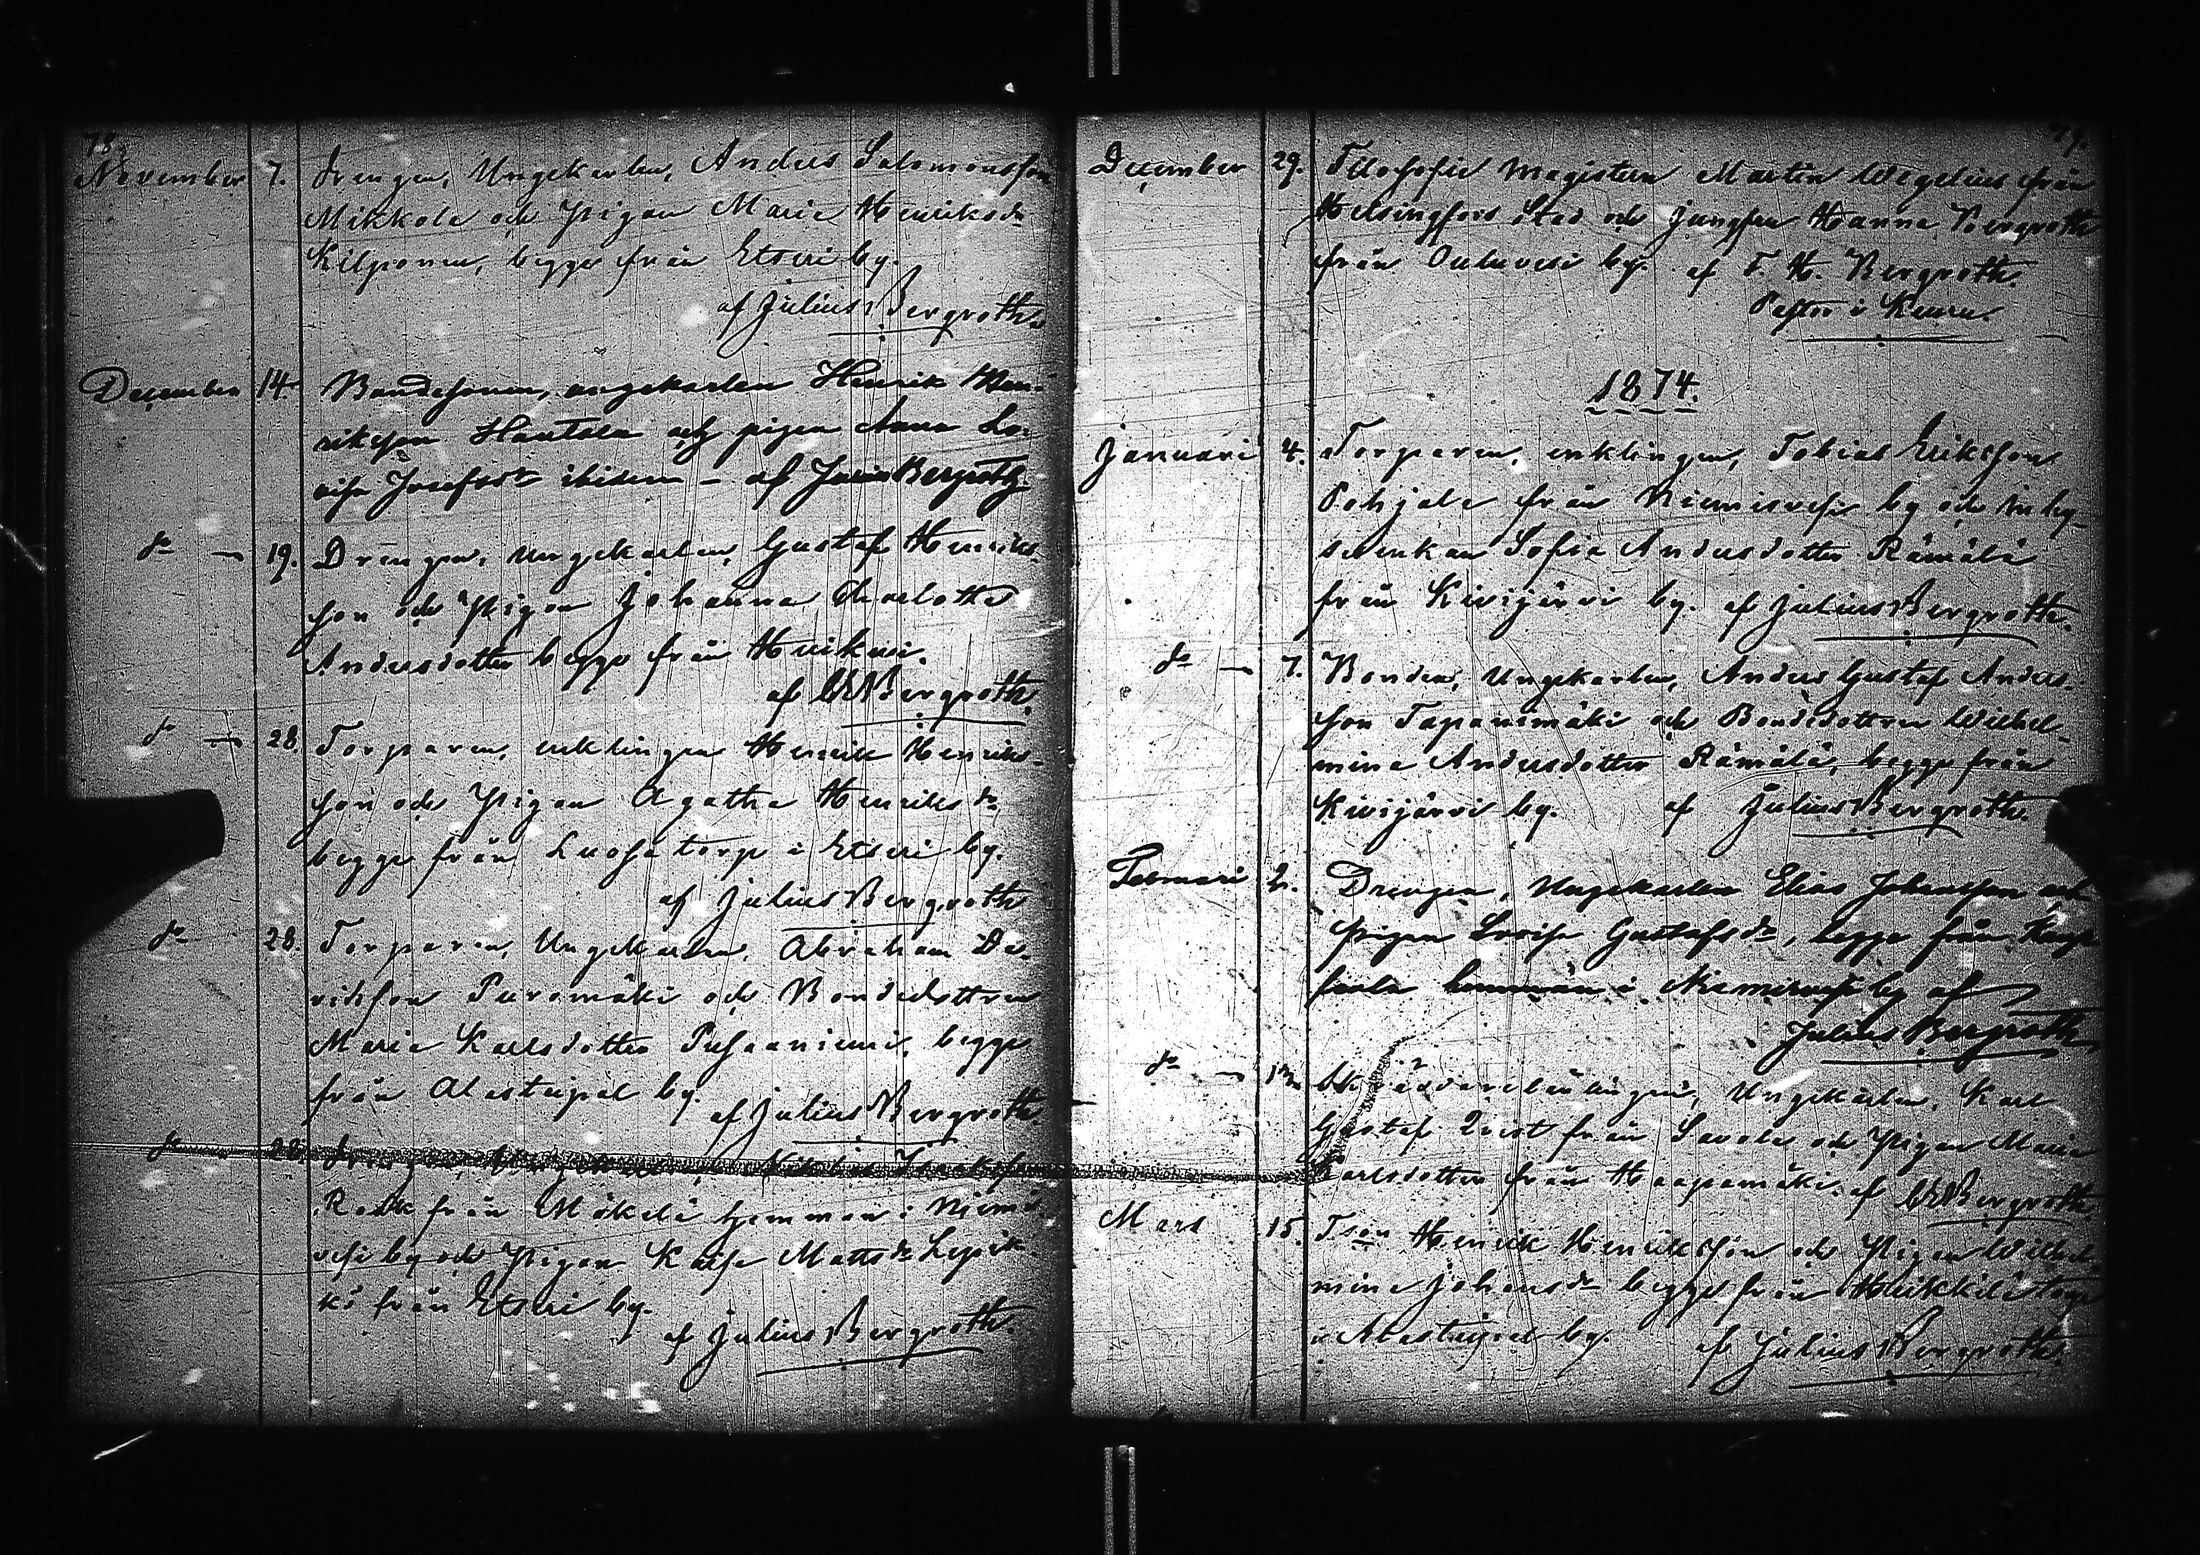 78.
November 7. Drengen, Ungekarlen, Anders Salomonsson
Mikkola och Pigan Maria Henriksdr
Kilponen, begge från Etseri by.
af Julius Bergroth.
December 14. Bondesonen, ungekarlen Henrik Hen-
riksson Hautala och pigan Anna Lo-
visa Josefsdr ibidem - af Julius Bergroth
do — 19. Drengen, Ungekarlen, Gustaf Henriks-
son och Pigan Johanna Charlotta
Andersdotter begge från
af Bergroth.
do — 28. Torparen, enklingen Henrik Henriks-
son och Pigan Agatha Henriksdr
begge från torp i Etseri by.
af Julius Bergroth
do 28. Torparen, Ungekarlen, Abraham Da-
vidsson Puromäki och Bondedottren
Maria Karlsdotter begge
från Alastaipal by.
af Julius Bergroth.
do 28. Isaksson
från Mäkelä hemman i Niemis-
vesi by och Pigan Kaisa Mattsdr
från Etseri by.
af Julius Bergroth.
79.
December 29. Filosofie Magistern Martin Wegelius från
Helsingfors Stad och Jungfru Hanna Bergroth
från by. af F. H. Bergroth.
Pastor i Keuru.
1874.
Januari 4. Torparen, enklingen, Tobias Eriksson
Pohjala från Niemisvesi by och Inhy-
seenkan Sofia Andersdotter Rämälä
från Kivijärvi by. af Julius Bergroth.
do — 7. Bonden, Ungekarlen, Anders Gustaf Anders-
son Tapanimäki och Bondedottren Wilhel-
mina Andersdotter Rämälä, begge från
Kivijärvi by. af Julius Bergroth.
Februari 2. Drengen, Ungekarlen Elias Johansson och
pigan Lovisa Gustafsdr, begge från
hemman i Niemisvesi by af
Julius Bergroth.
do — Ungekarlen, Karl
Gustaf Qvist från Savola och Pigan Maria
Karlsdotter från Haapamäki. af Bergroth.
Mars 15. Tson Henrik Henriksson och Pigan Wilhel-
mina Johansdr begge från Heikkilä torp
i Alastaipal by. af Julius Bergroth.